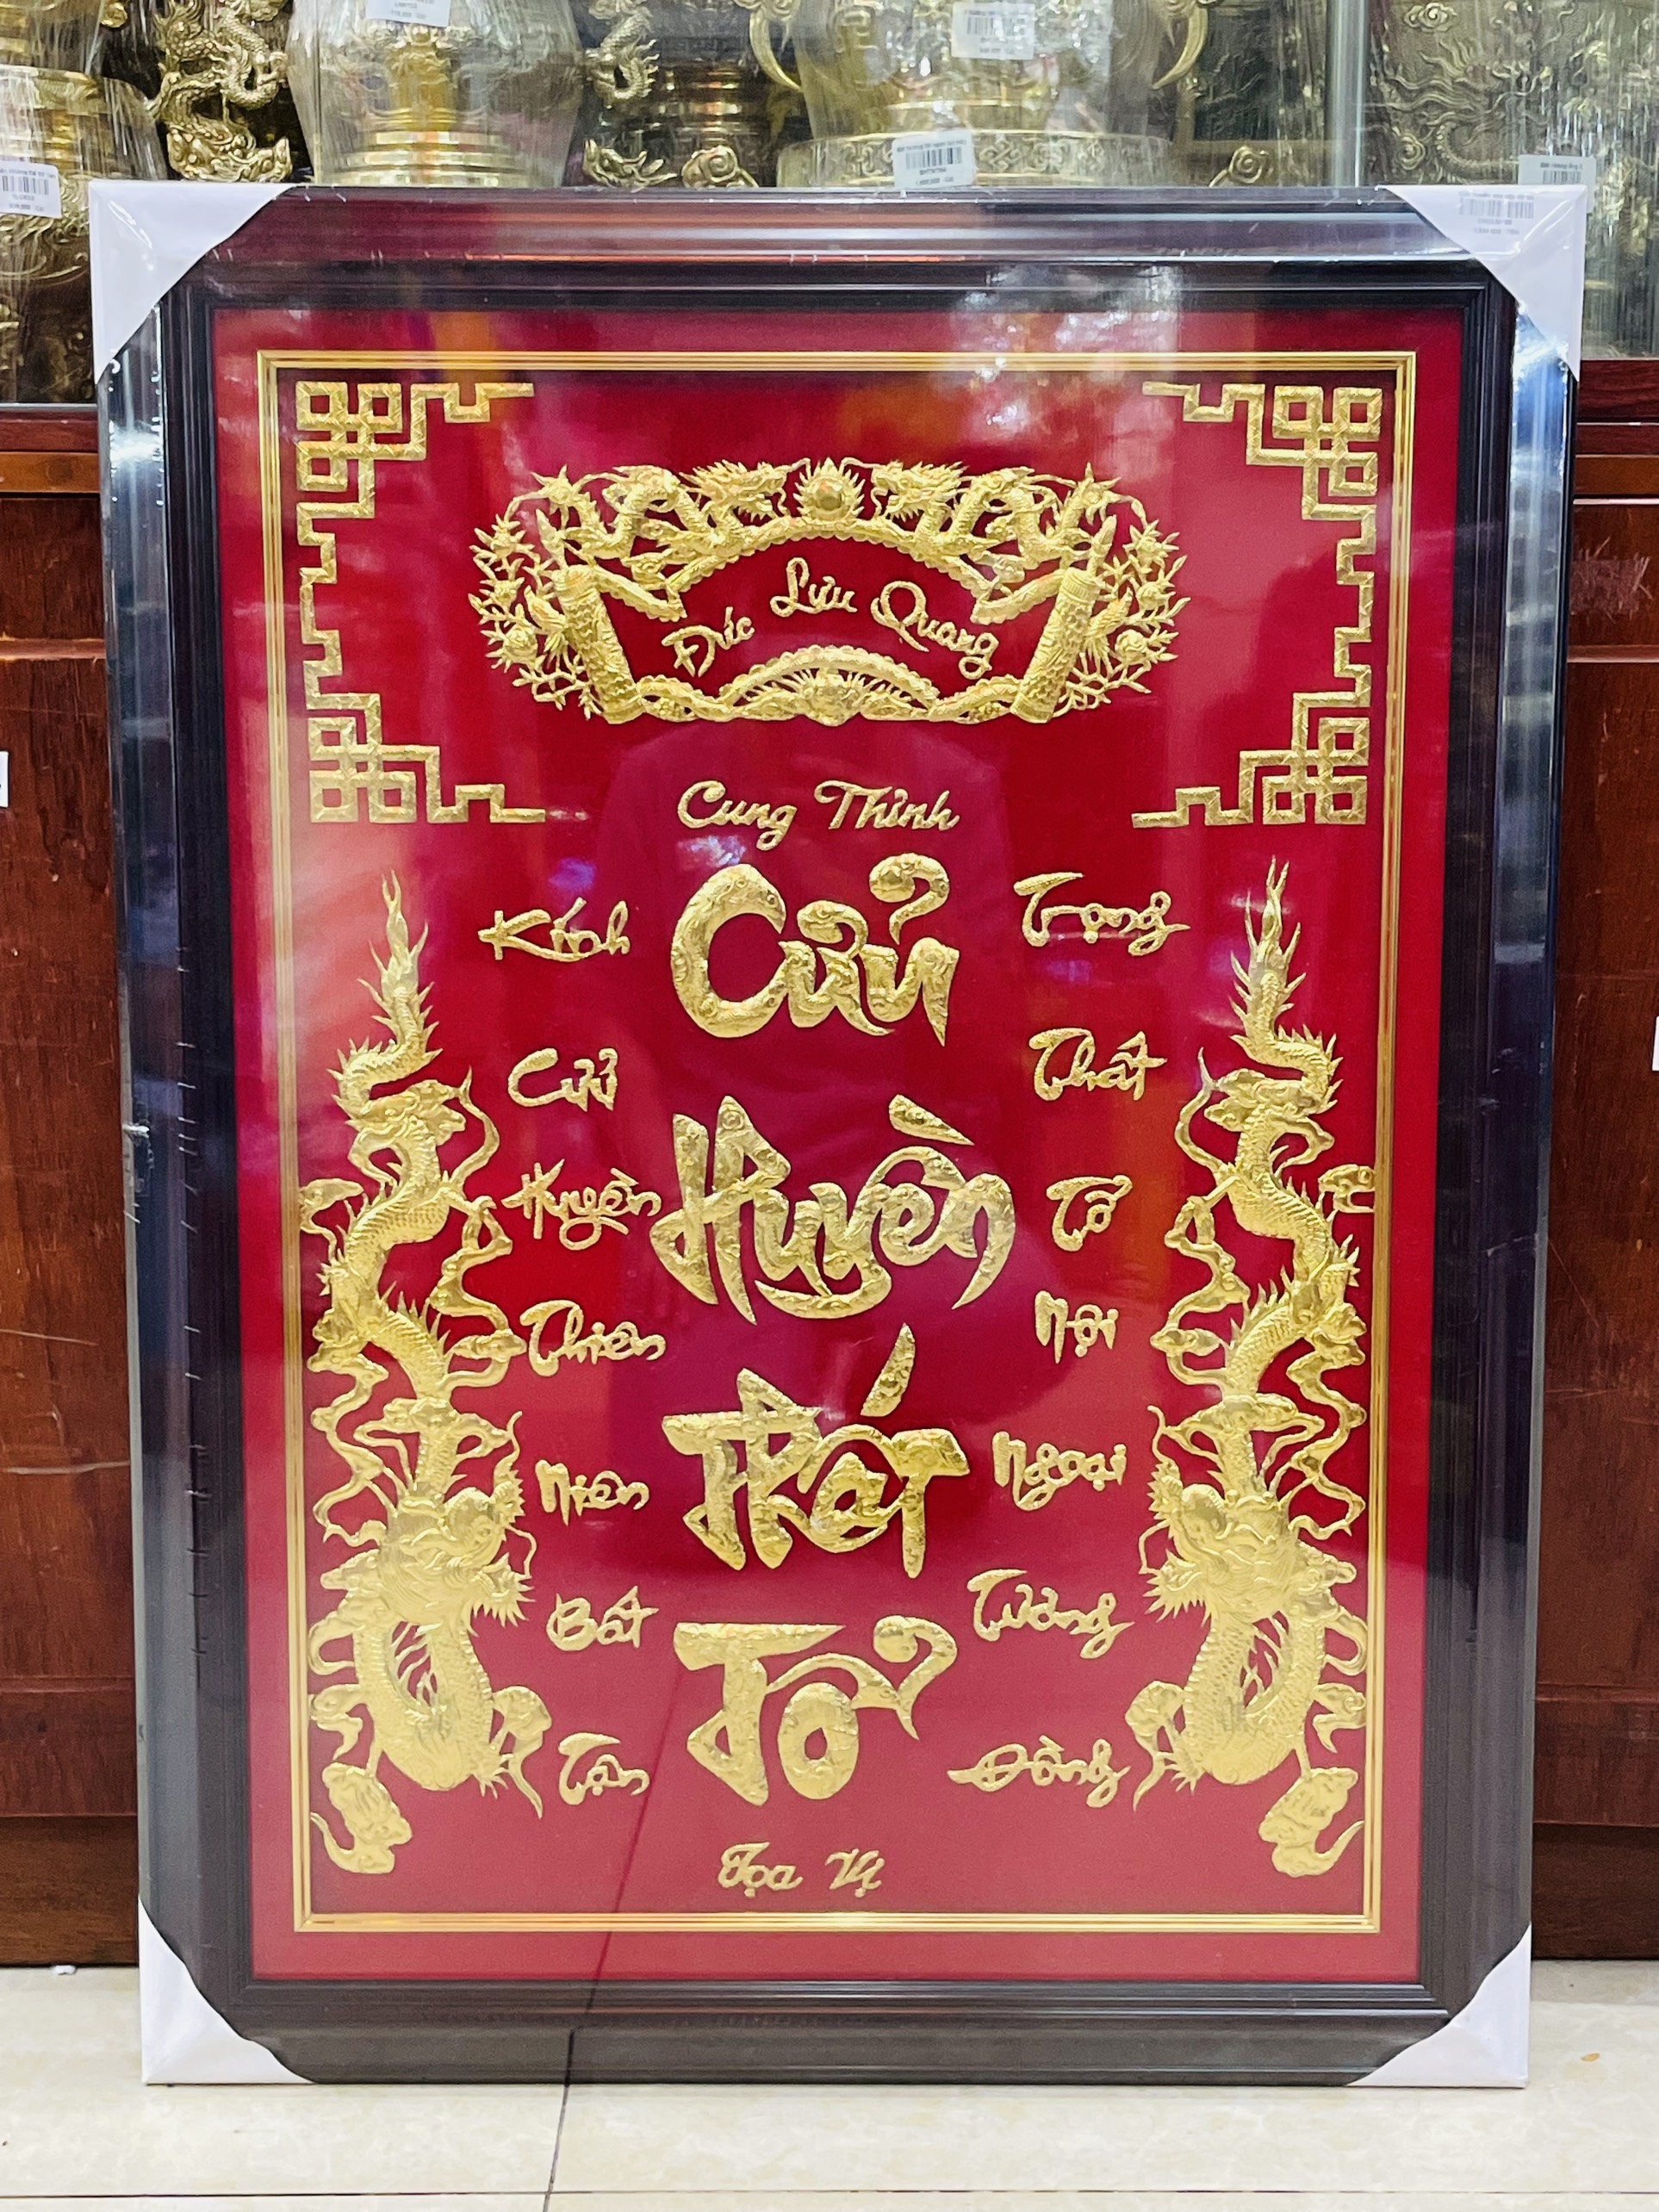 Đức Lưu Quang
Cung Thỉnh
Cửu Huyền Thất Tổ
Kính Cửu Huyền Thiên Niên Bất Tận
Trọng Thất Tổ Nội Ngoại Tương Đồng
Tọa Vị